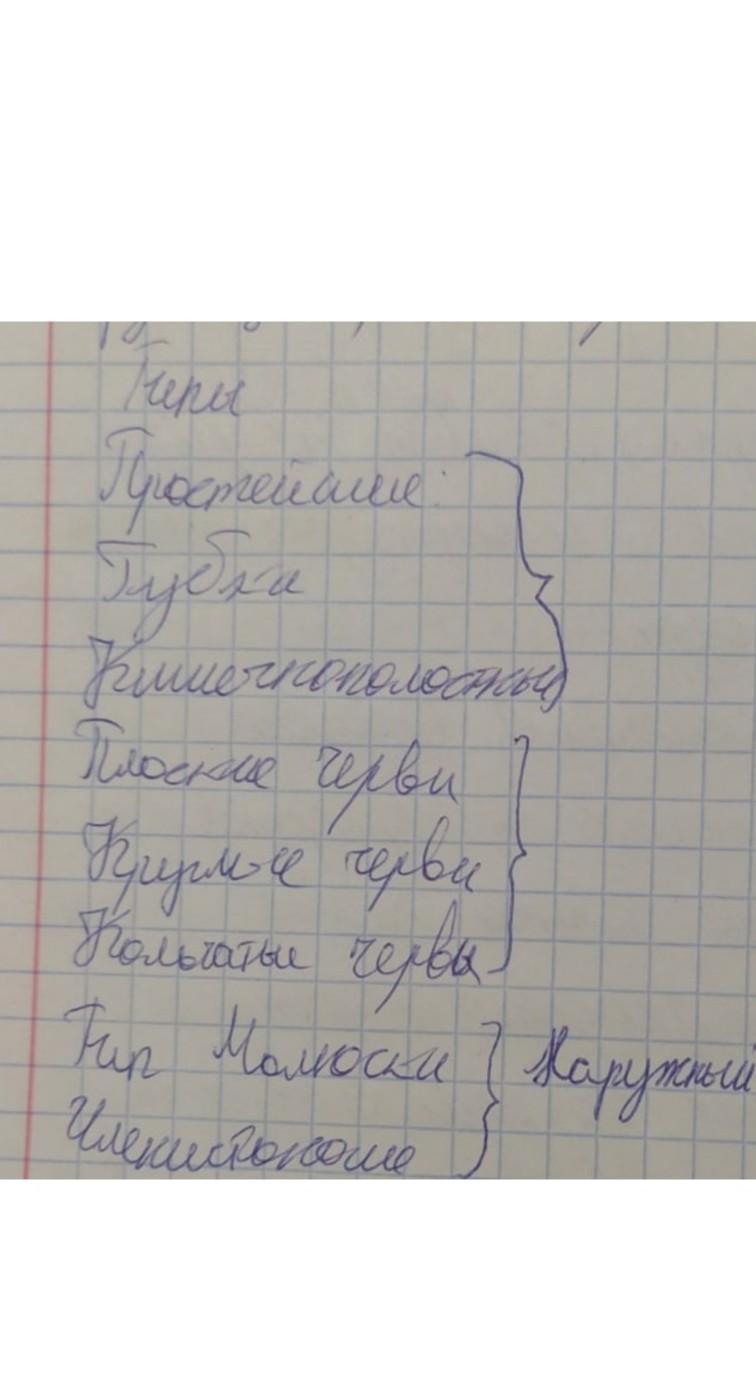 Типы
Простейшие:
Губки
Кишечнополостные
Плоские черви
Круглые черви
Кольчатые червы
Тип Молюски } Наружный
Членистоногие